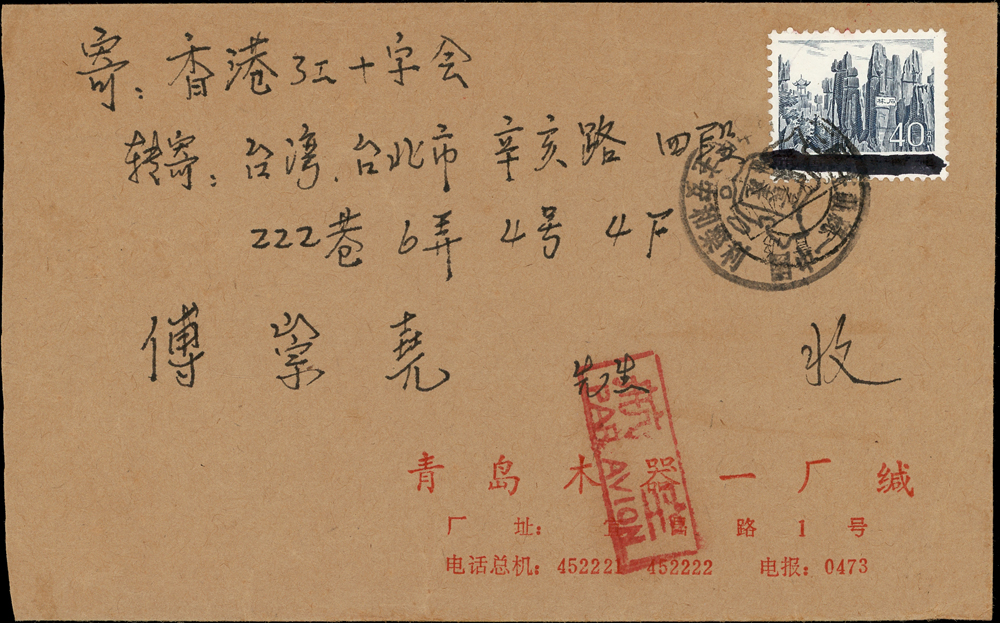 寄：香港红十字会
转寄：台湾．台北市 辛亥路 四段
222巷 6弄 4号 4F
傅 崇 尧 先生 收
40
航空
PAR AVION
青岛木器一厂缄
厂 址： 宜昌路1号
电话总机：452221 452222 电报：0473